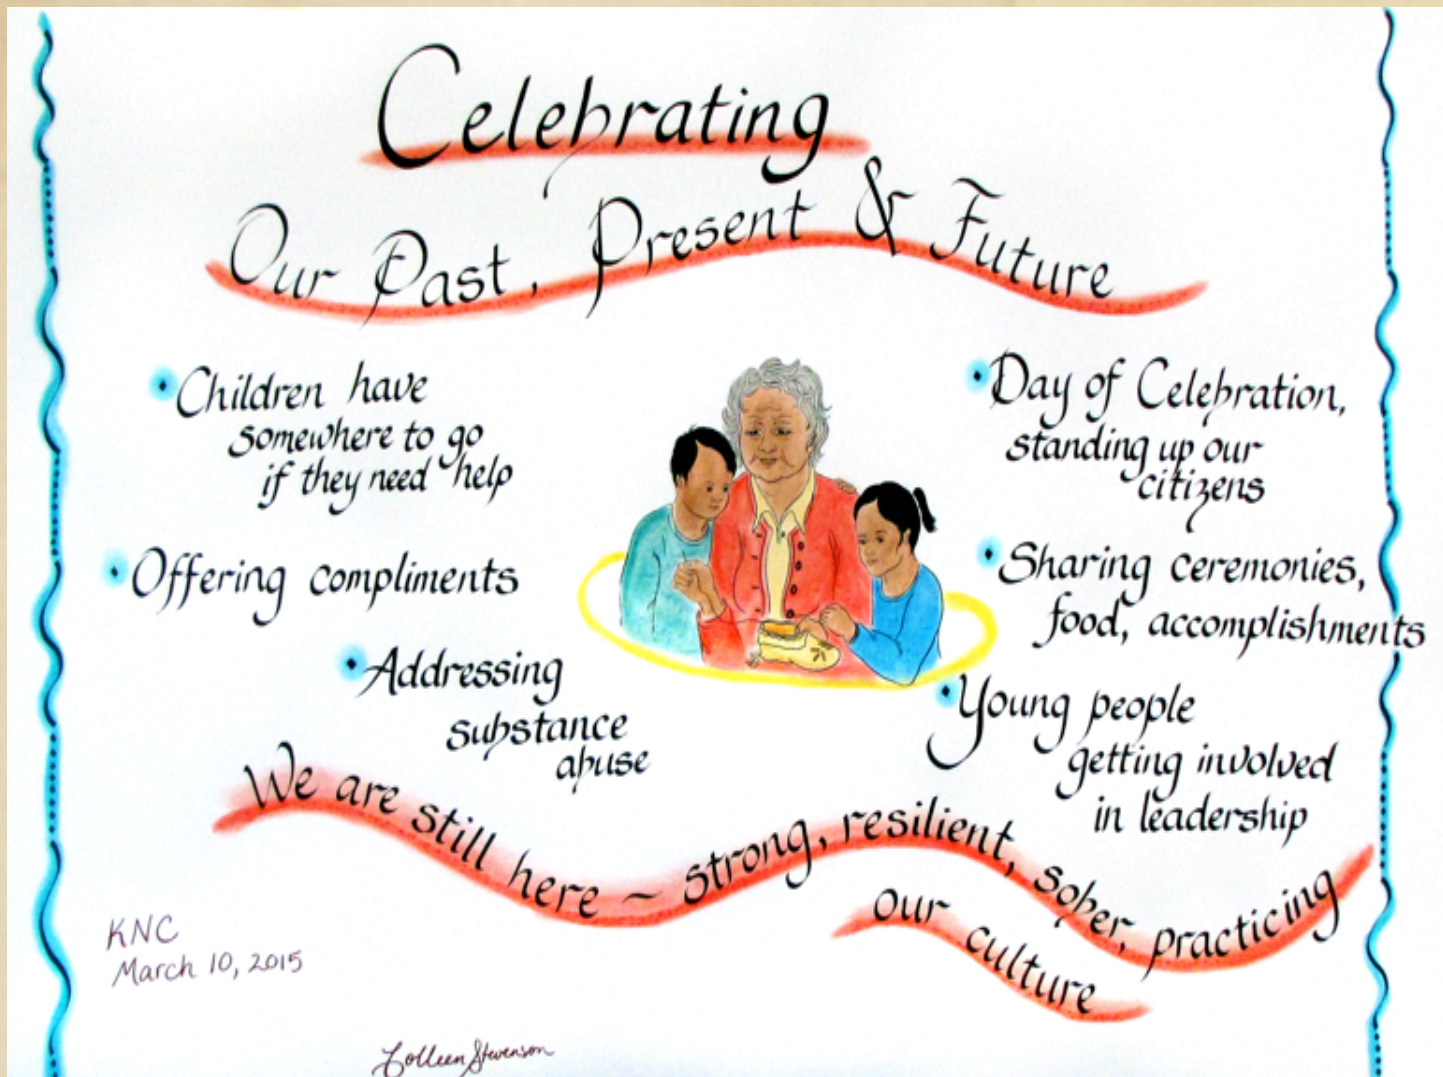 Celebrating
Our Past, Present & Future
Children have
somewhere to go
if they need help
Offering compliments
Addressing
substance
abuse
Day of Celebration,
standing up our
citizens
Sharing ceremonies,
food, accomplishments
Young people
getting involved
in leadership
We are still here ~ strong, resilient, sober, practicing
our culture
KNC
March 10, 2015
Colleen Stevenson